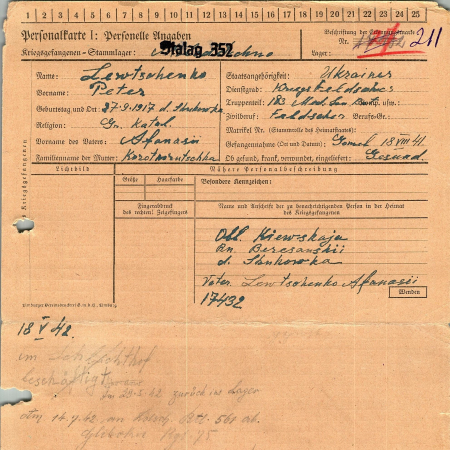 1 2 3 4 5 6 7 8 9 10 11 12 13 14 15 16 17 18 19 20 21 22 23 24 25
Personalkarte I: Personelle Angaben
Kriegsgefangenen-Stammlager: Stalag 352
Beschriftung der Erkennungsmarke
Nr. 211
Lager:
Name: Lewtschenko
Vorname: Peter
Geburtstag und Ort: 27-9-1917 d. Stankowka
Religion: Gr. Kathl.
Vorname des Vaters: Afanasii
Familienname der Mutter:
Staatsangehörigkeit: Ukrainer
Dienstgrad: Kriegsfeldscher
Truppenteil: 183 Med. San. Batl.
Zivilberuf: Feldscher Berufs-Gr.
Matrikel Nr. (Stammrolle des Heimatstaates)
Gefangennahme (Ort und Datum): Gomel 18 VIII 41.
Ob gesund, krank, verwundet, eingeliefert: Gesund.
Lichtbild
Nähere Personalbeschreibung
Größe
Haarfarbe
Besondere Kennzeichen:
Fingerabdruck
des rechten! Zeigefingers
Name und Anschrift der zu benachrichtigenden Person in der Heimat
des Kriegsgefangenen
Obl. Kiewskaja
Rn. Beresanskii
d. Stankowka
Vater Lewtschenko Afanasii
17432
Wenden
des Kriegsgefangenen
18 V 42.
im Schlachthof
beschäftigt
zurück ins Lager